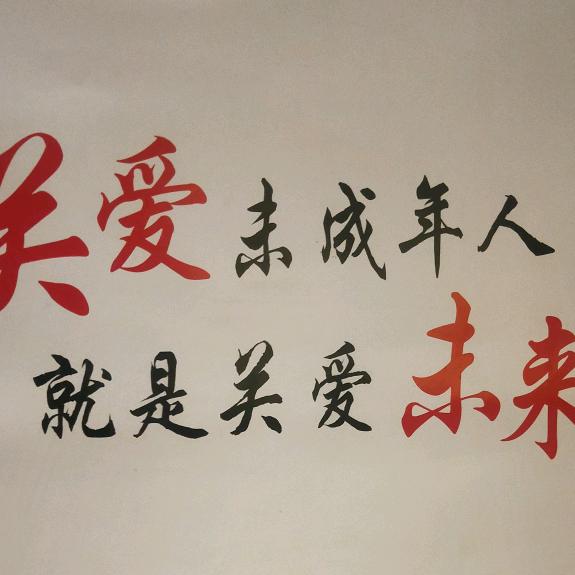 关爱未成年人
就是关爱未来